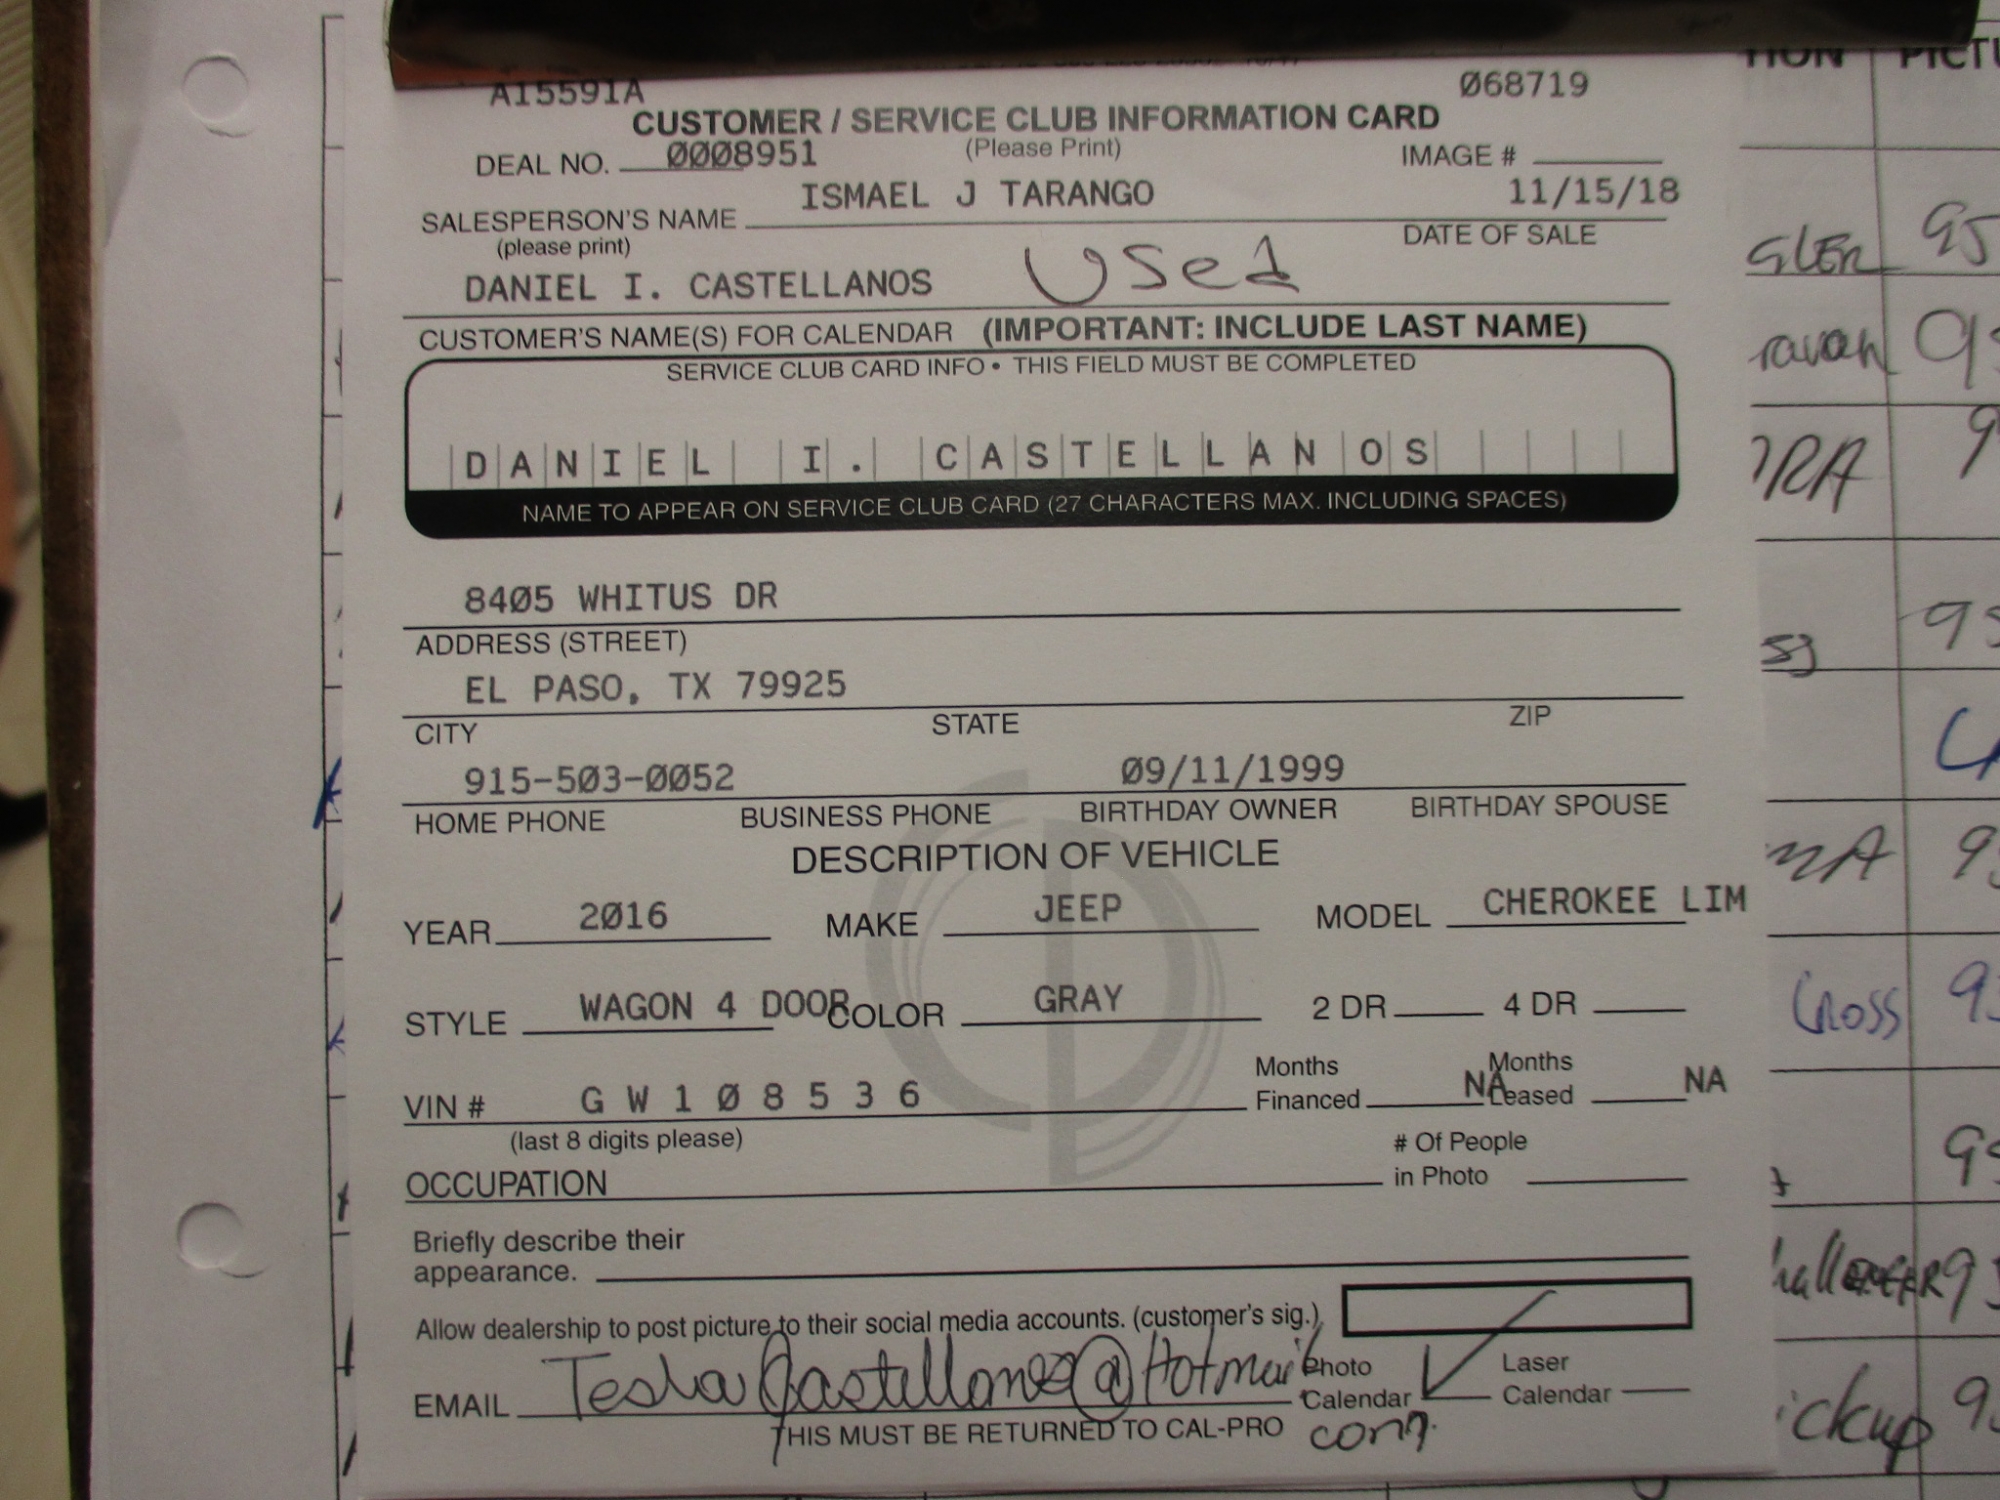 A15591A 068719
CUSTOMER / SERVICE CLUB INFORMATION CARD
DEAL NO. 0008951 (Please Print) IMAGE #
ISMAEL J TARANGO 11/15/18
SALESPERSON'S NAME DATE OF SALE
(please print)
DANIEL I. CASTELLANOS Used
CUSTOMER'S NAME(S) FOR CALENDAR (IMPORTANT: INCLUDE LAST NAME)
SERVICE CLUB CARD INFO • THIS FIELD MUST BE COMPLETED
DANIEL I. CASTELLANOS
NAME TO APPEAR ON SERVICE CLUB CARD (27 CHARACTERS MAX. INCLUDING SPACES)
8405 WHITUS DR
ADDRESS (STREET)
EL PASO, TX 79925
CITY STATE ZIP
915-503-0052 09/11/1999
HOME PHONE BUSINESS PHONE BIRTHDAY OWNER BIRTHDAY SPOUSE
DESCRIPTION OF VEHICLE
YEAR 2016 MAKE JEEP MODEL CHEROKEE LIM
STYLE WAGON 4 DOOR COLOR GRAY 2 DR 4 DR
VIN # G W 1 0 8 5 3 6 Months Financed NA Months Leased NA
(last 8 digits please)
OCCUPATION # Of People in Photo
Briefly describe their
appearance.
Allow dealership to post picture to their social media accounts. (customer's sig.)
EMAIL @Hotmail Photo Calendar Laser Calendar
THIS MUST BE RETURNED TO CAL-PRO com.
Cross